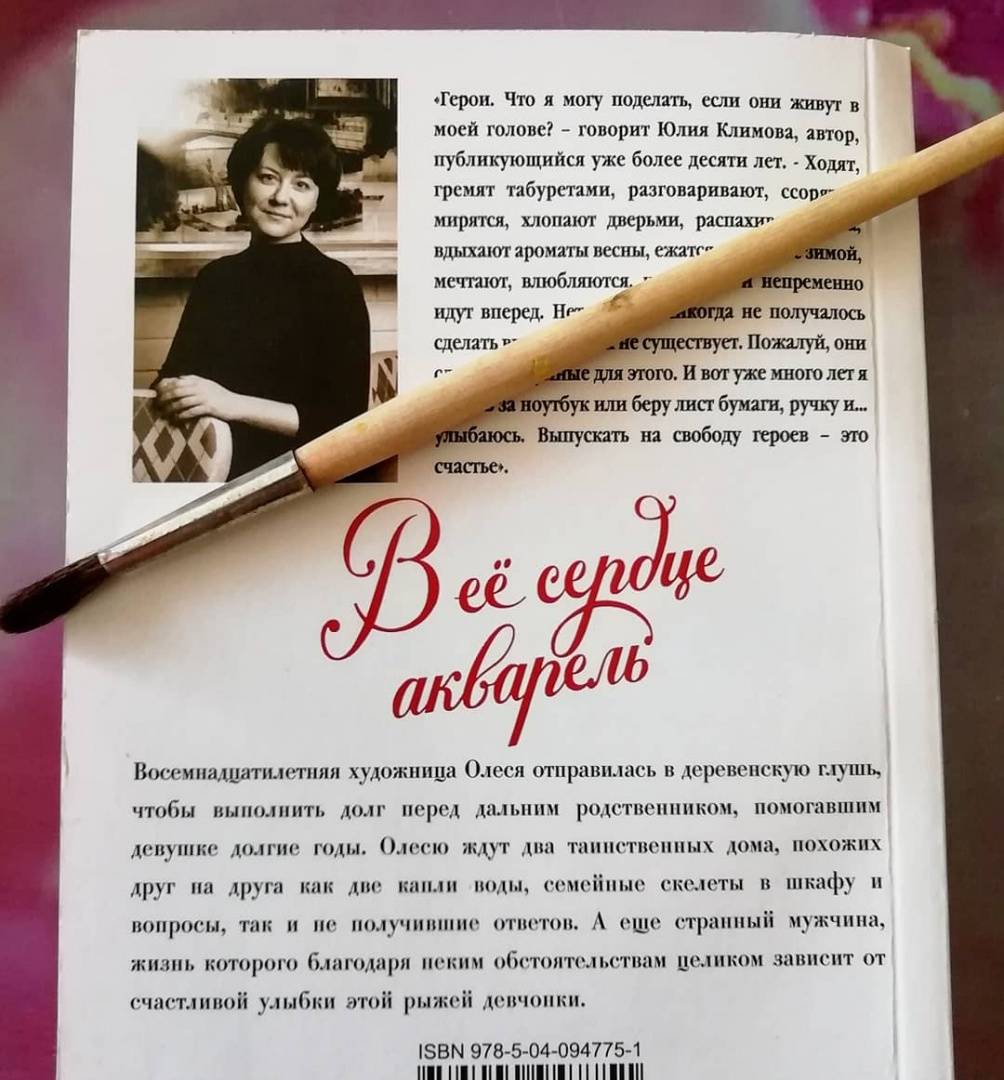 «Герои. Что я могу поделать, если они живут в
моей голове? – говорит Юлия Климова, автор,
публикующийся уже более десяти лет. - Ходят,
гремят табуретами, разговаривают,
мирятся, хлопают дверьми,
вдыхают ароматы весны, зимой,
мечтают, влюбляются, и непременно
идут вперед. не получалось
сделать не существует. Пожалуй, они
для этого. И вот уже много лет я
за ноутбук или беру лист бумаги, ручку и...
улыбаюсь. Выпускать на свободу героев – это
счастье».
В её сердце
акварель
Восемнадцатилетняя художница Олеся отправилась в деревенскую глушь,
чтобы выполнить долг перед дальним родственником, помогавшим
девушке долгие годы. Олесю ждут два таинственных дома, похожих
друг на друга как две капли воды, семейные скелеты в шкафу и
вопросы, так и не получившие ответов. А еще странный мужчина,
жизнь которого благодаря неким обстоятельствам целиком зависит от
счастливой улыбки этой рыжей девчонки.
ISBN 978-5-04-094775-1